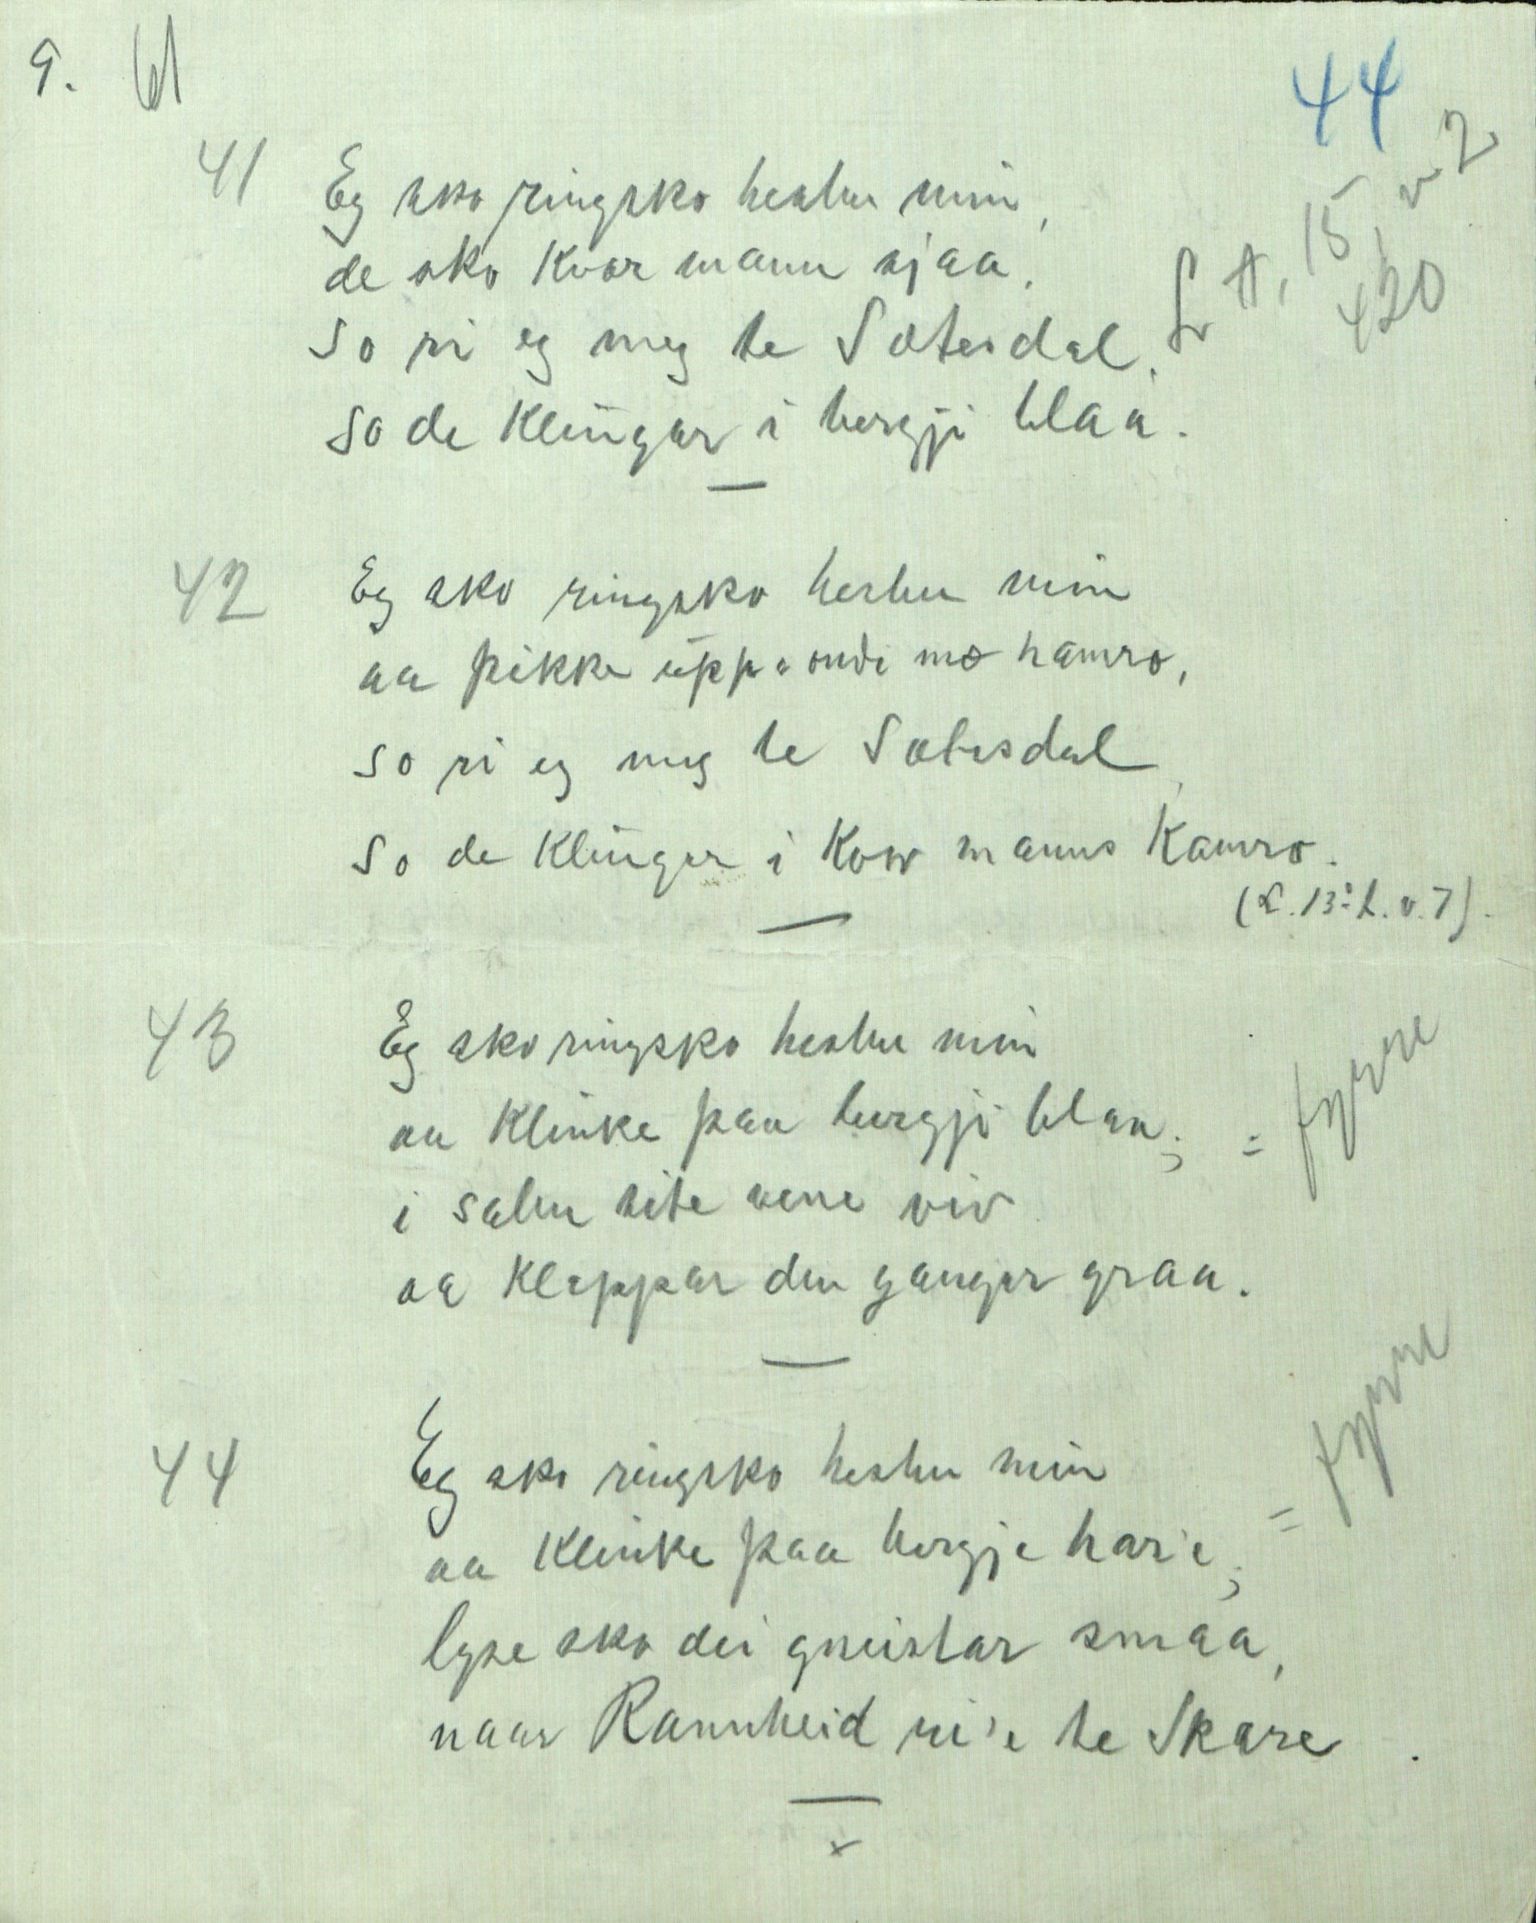 9. 61
44
41 Eg sko ringsko hesten min,
de sko kvar mann sjaa.
So ri eg meg te Sætesdal,
so de klingar i bergji blaa.
A, 15, v 2
420
42 Eg sko ringsko hesten min
aa pikke upp onde mæ hamro,
so ri eg meg te Sætesdal,
so de klinger i kvar manns kamro.
(L. 13: h. v. 7).
43 Eg sko ringsko hesten min
aa klinke paa bergji blaa; = fyrre
i salen site vene viv
aa kleppar den ganger graa.
44 Eg sko ringsko hesten min
aa klinke paa bergje har'e; = fyrre
lyse sko dei gneistar smaa,
naar Rannheid ri'e te Skare.